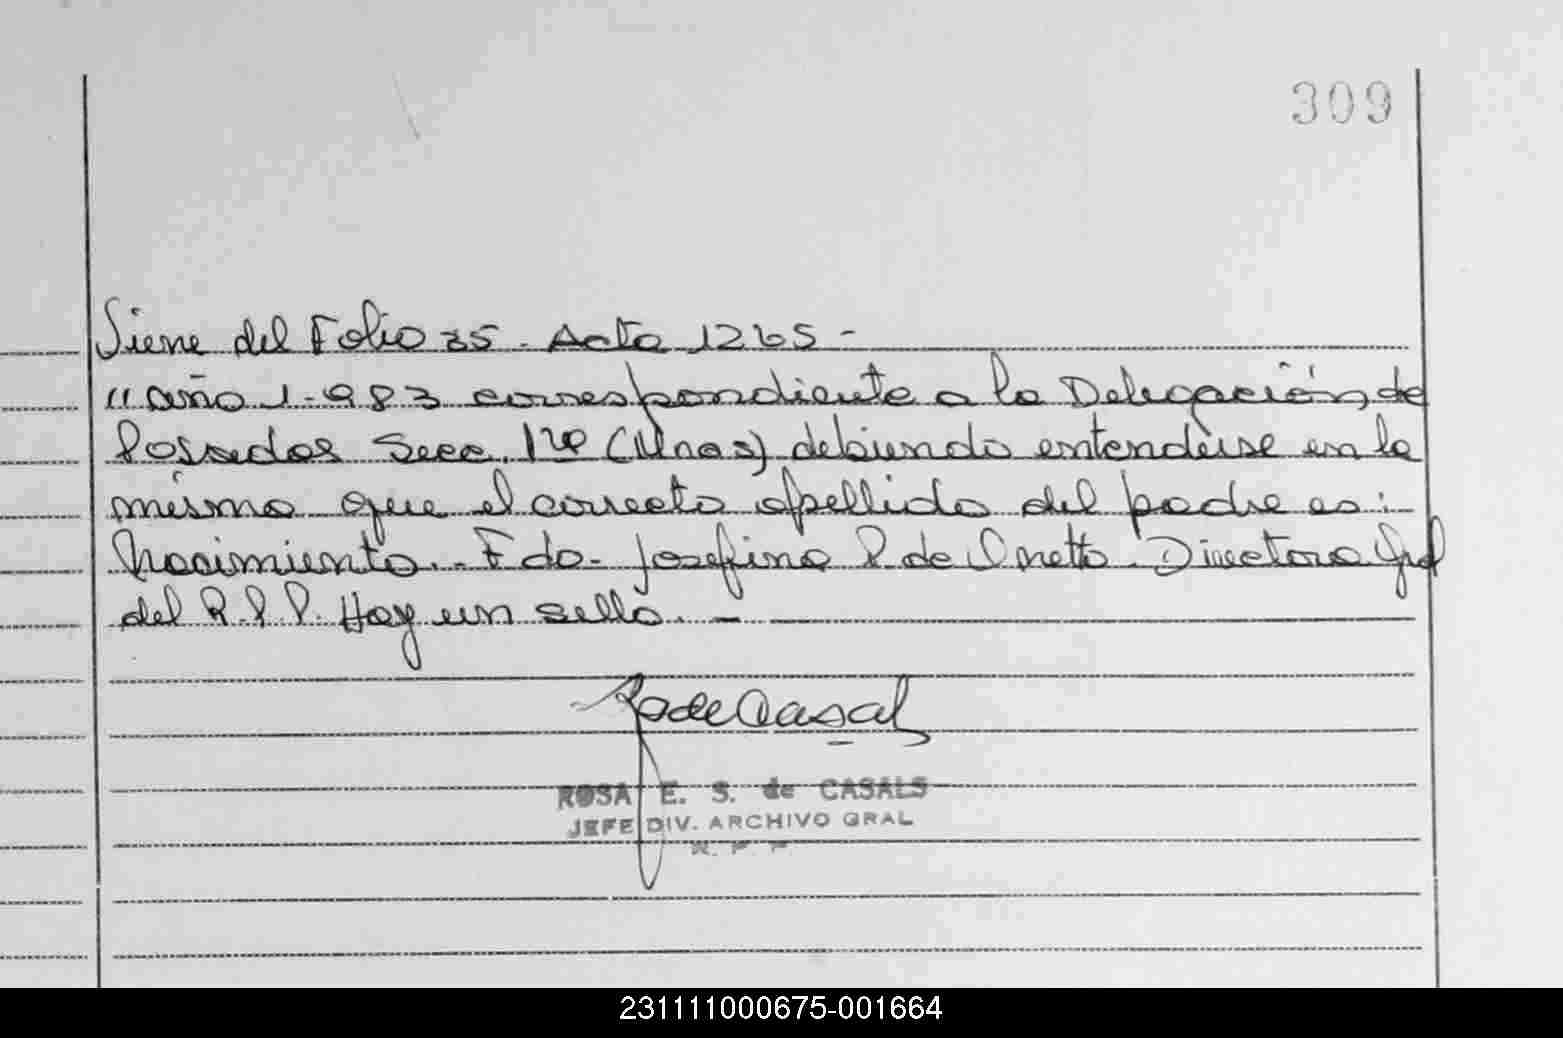 309
Viene del Folio 35 - Acta 1265 -
" año 1.983 correspondiente a la Delegación de
Posadas Secc. 1ra (Unas) debiendo entenderse en la
misma que el correcto apellido del padre es:
Nacimiento. - Fdo. Josefina P. de Onetto. Directora Gral
del R.P.P. Hay un sello. -
R de Casals
ROSA E. S. de CASALS
JEFE DIV. ARCHIVO GRAL
R. P. P.
231111000675-001664